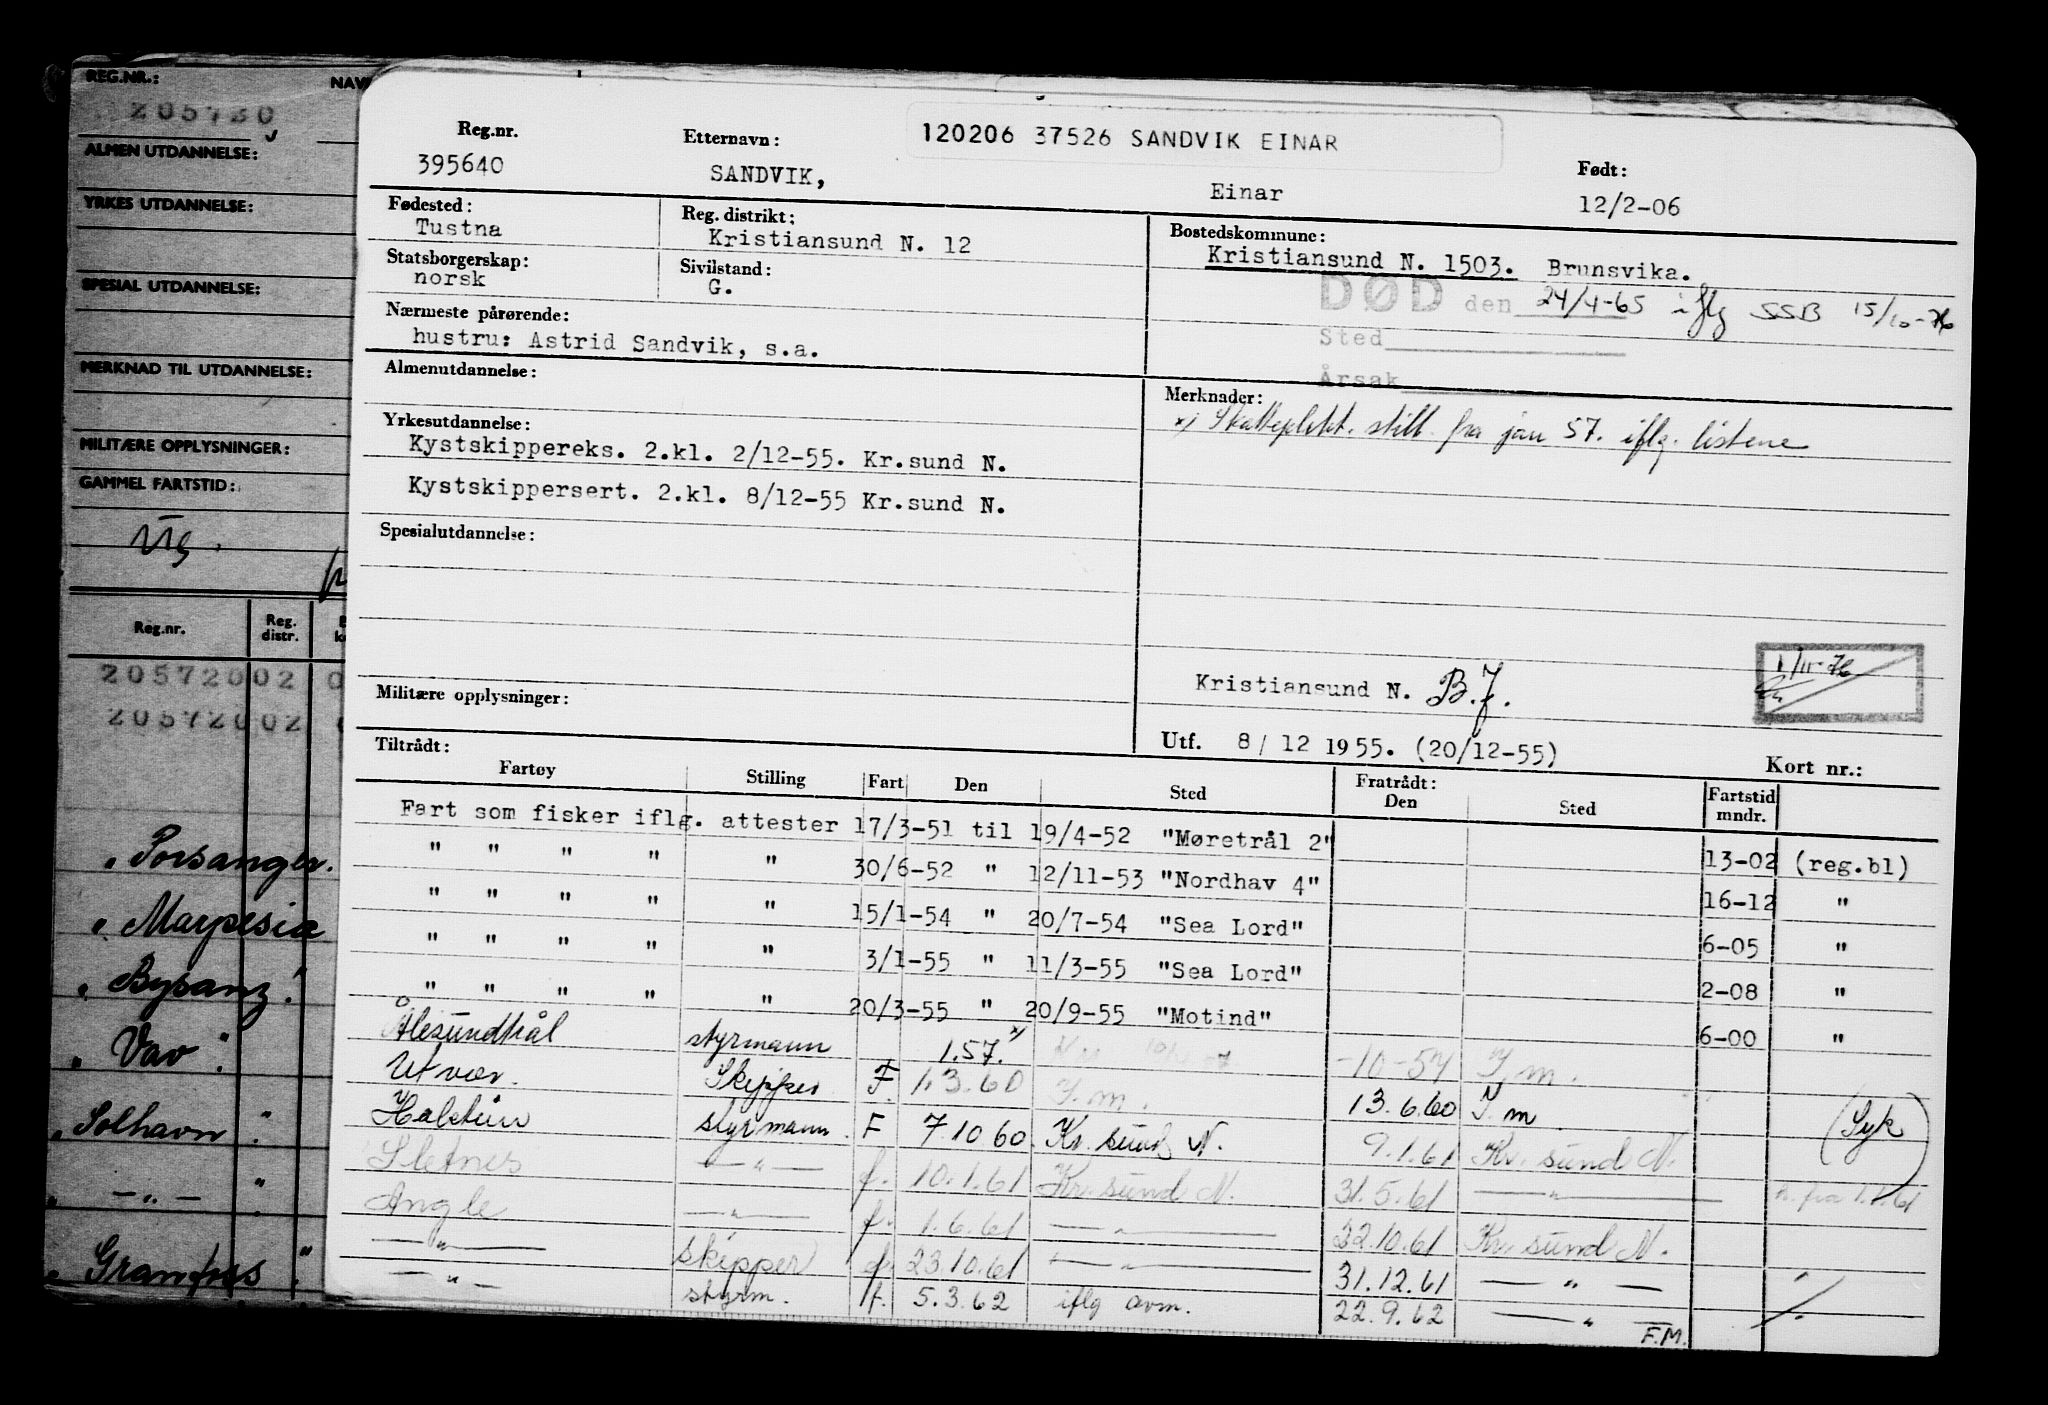 REG.NR.: NAV
205720
ALMEN UTDANNELSE:
YRKES UTDANNELSE:
SPESIAL UTDANNELSE:
MERKNAD TIL UTDANNELSE:
MILITÆRE OPPLYSNINGER:
GAMMEL FARTSTID:
Reg.nr. Reg. distr.
20572002 0
20572002
" Porsanger.
" Marpesia
" Bysanz."
" Vav."
" Solhavn."
" — " — "
" Granfnes."
120206 37526 SANDVIK EINAR
Reg.nr. Etternavn: Født:
395640 SANDVIK, Einar 12/2-06
Fødested: Reg. distrikt: Bostedskommune:
Tustna Kristiansund N. 12 Kristiansund N. 1503. Brunsvika.
Statsborgerskap: Sivilstand:
norsk G.
DØD den 24/4-65 iflg SSB 15/10-76
Sted
Årsak
Nærmeste pårørende:
hustru: Astrid Sandvik, s.a.
Almenutdannelse:
Merknader:
x) Skatteplikt. still. fra jan 57. iflg. listene
Yrkesutdannelse:
Kystskippereks. 2.kl. 2/12-55. Kr.sund N.
Kystskippersert. 2.kl. 8/12-55 Kr.sund N.
Spesialutdannelse:
1/11-76
Kristiansund N. B.J.
Militære opplysninger:
Utf. 8/12 1955. (20/12-55)
Tiltrådt: Fratrådt: Kort nr.:
Fartøy Stilling Fart Den Sted Den Sted Fartstid mndr.
Fart som fisker iflg. attester 17/3-51 til 19/4-52 "Møretrål 2" 13-02 (reg.bl)
" " " " " 30/6-52 " 12/11-53 "Nordhav 4" 16-12 "
" " " " " 15/1-54 " 20/7-54 "Sea Lord" 6-05 "
" " " " " 3/1-55 " 11/3-55 "Sea Lord" 2-08 "
" " " " " 20/3-55 " 20/9-55 "Motind" 6-00 "
Ålesundtrål styrmann 1.57. x) -10-57 I.m.
Utvær. Skipper F. 1.3.60 I.m. 13.6.60 I.m (Syk)
Halstein styrmann. F 7.10 60. Kr.sund N. 9.1.61 Kr. sund N.
Sletnes — " — f. 10.1.61 Kr.sund N. 31.5.61 — " — h. fra 1.1.61
Angle — " — f. 1.6.61 — " — 22.10.61 Kr. sund N.
— " — skipper f. 23.10.61 — " — 31.12.61 — " —
— " — styrm. f. 5.3.62 iflg avm. 22.9.62 — " —
F.M.